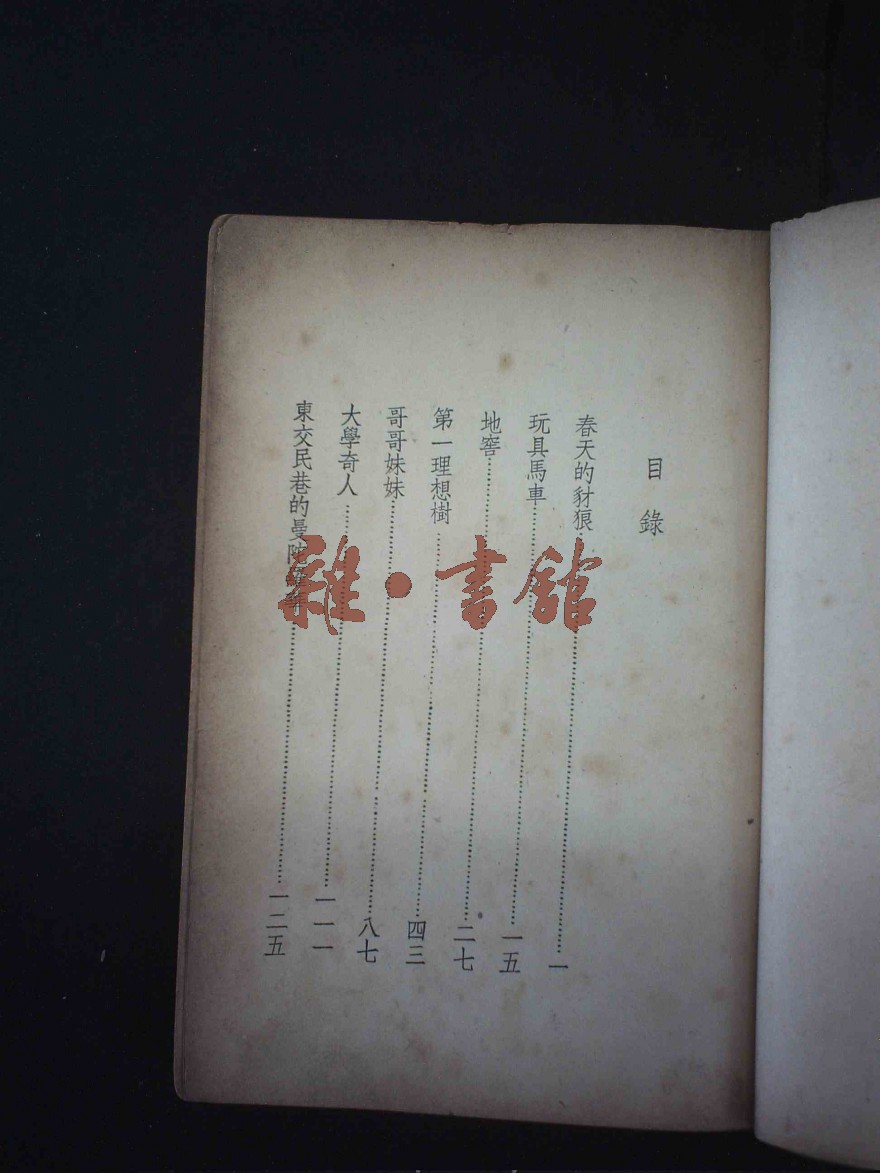 目錄
春天的豺狼……一
玩具馬車……一五
地窖……二七
第一理想樹……四三
哥哥妹妹……八七
大學奇人……一一一
東交民巷的曼陀……一二五
雜·書館